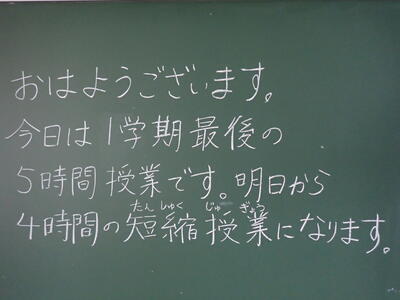 おはようございます。
今日は1学期最後の
5時間授業です。明日から
たんしゅく じゅぎょう
4時間の短縮授業になります。